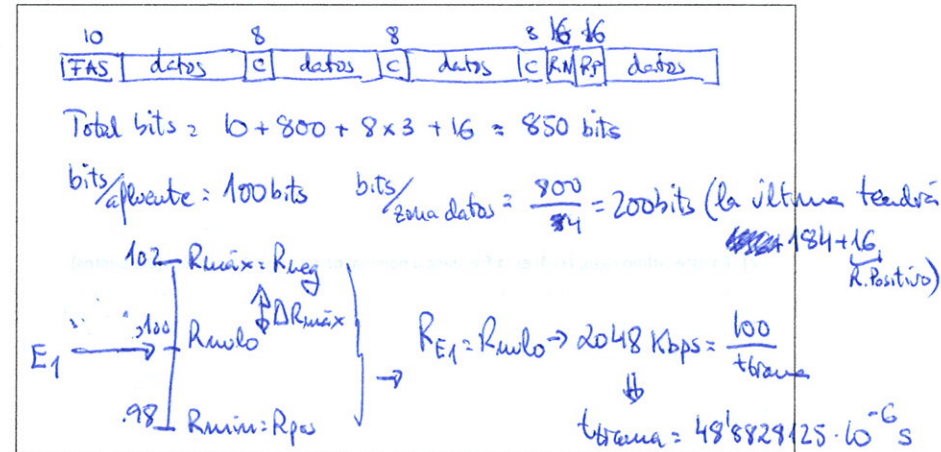 10 8 8 8 16 16
FAS datos C datos C datos C RN RP datos
Total bits = 10 + 800 + 8 x 3 + 16 = 850 bits
bits/afluente = 100 bits bits/zona datos = 800/4 = 200 bits (la última tendrá
184 + 16
R. Positivo)
102 Rmáx = Rneg
ΔRmáx
E1 100 Rnulo → RE1 = Rnulo → 2048 Kbps = 100/ttrama
⇓
98 Rmin = Rpos
ttrama = 48'8828125 · 10^-6 s